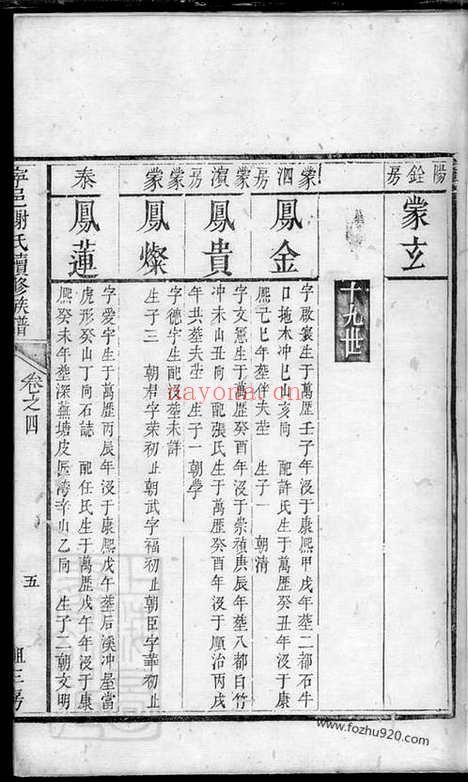 陽銓房
蒙玄
十九世
蒙泗房
鳳金
字啟寰生于萬歷壬子年没于康熙甲戌年塟二都石牛
口拖木冲巳山亥向　配許氏生于萬歷癸丑年没于康
熙己巳年塟伴夫塋　生子一　朝清
蒙濵房
鳳貴
字文憲生于萬歷癸酉年没于崇禎庚辰年塟八都白竹
冲未山丑向　配張氏生于萬歷癸酉年没于順治丙戌
年共塟夫塋　生子一　朝學
蒙
鳳燦
字德宇生配没塟未詳
生子三　朝君字荣初止朝武字福初止朝臣字華初止
泰
鳳蓮
字愛宇生于萬歷丙辰年没于康熙戊午年塟后溪冲屋當
虎形癸山丁向石誌　配任氏生于萬歷戊午年没于康
熙癸未年塟深蕪塘皮匠湾辛山乙向　生子二朝文明
寧邑謝氏續修族譜
卷之四
五
祖三房
nayona.cn
www.fozhu920.com